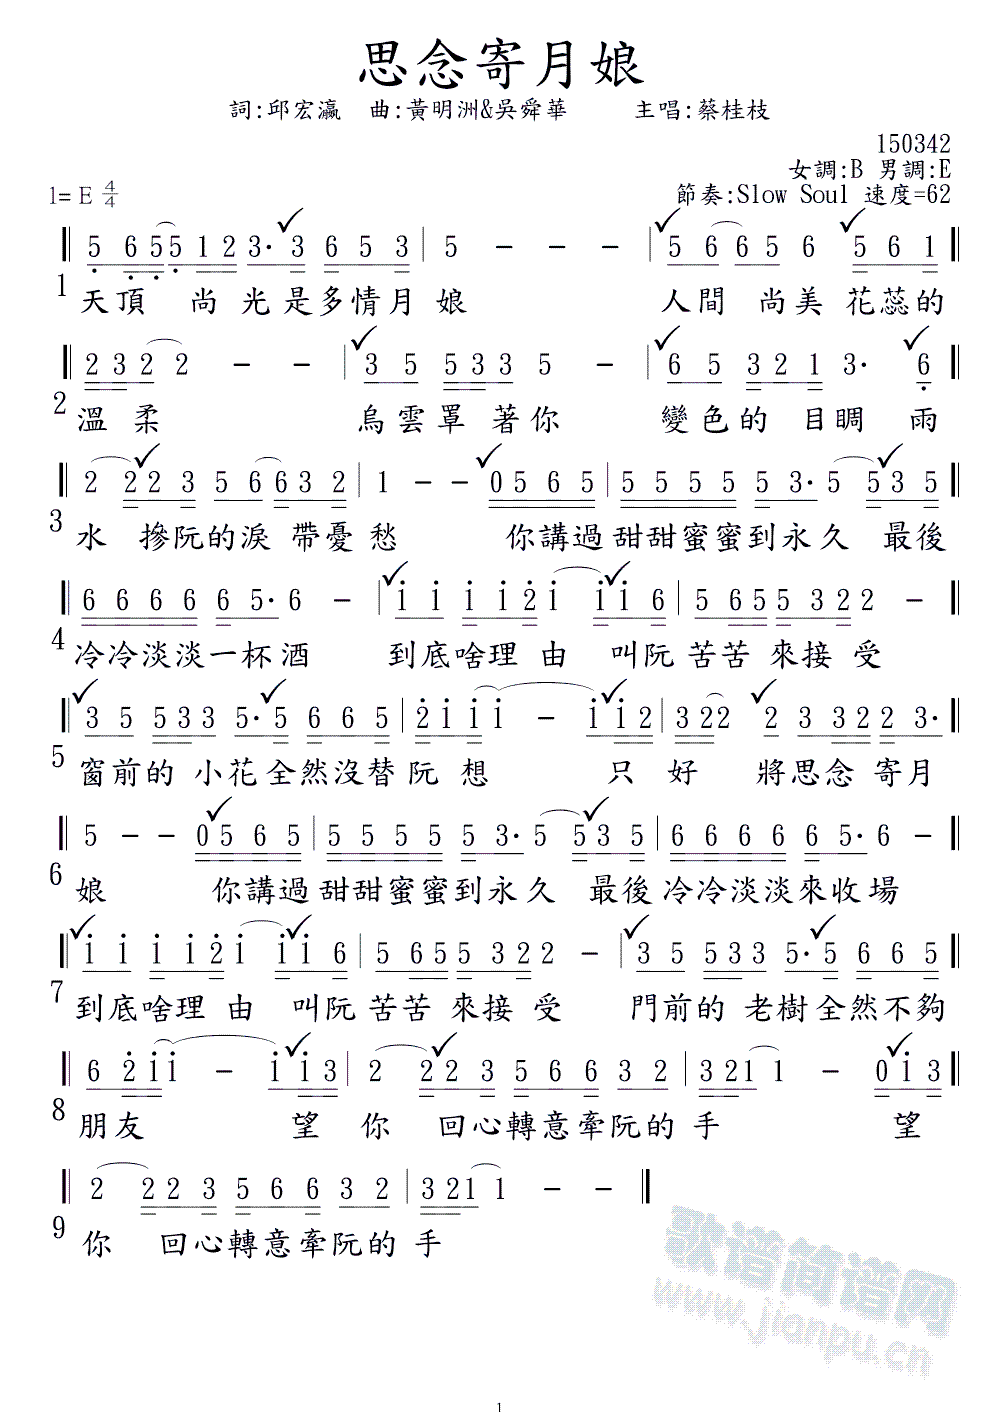 思念寄月娘
詞:邱宏瀛 曲:黃明洲&吳舜華 主唱:蔡桂枝
150342
女調:B 男調:E
1= E 4/4 節奏:Slow Soul 速度=62
5 6 5 5 1 2 3· 3 6 5 3 | 5 - - - | 5 6 6 5 6 5 6 1
1 天頂 尚 光是多情月 娘 人間 尚美 花蕊的
2 3 2 2 - - | 3 5 5 3 3 5 - | 6 5 3 2 1 3· 6
2 溫 柔 烏雲罩 著你 變色的 目睭 雨
2 2 2 3 5 6 6 3 2 | 1 - - 0 5 6 5 | 5 5 5 5 5 3· 5 5 3 5
3 水 摻阮的淚 帶憂 愁 你講過甜甜蜜蜜到永久 最後
6 6 6 6 6 5· 6 - | i i i i 2 i i i 6 | 5 6 5 5 3 2 2 2 -
4 冷冷淡淡一杯酒 到底啥理 由 叫阮 苦苦 來接 受
3 5 5 3 3 5· 5 6 6 5 | 2 i i i - i i 2 | 3 2 2 2 3 3 2 2 3·
5 窗前的 小花全然沒替阮 想 只 好 將思念 寄月
5 - - 0 5 6 5 | 5 5 5 5 5 3· 5 5 3 5 | 6 6 6 6 6 5· 6 -
6 娘 你講過甜甜蜜蜜到永久 最後冷冷淡淡來收場
i i i i 2 i i i 6 | 5 6 5 5 3 2 2 2 - | 3 5 5 3 3 5· 5 6 6 5
7 到底啥理 由 叫阮 苦苦 來接 受 門前的 老樹全然不夠
6 2 i i - i i 3 | 2 2 2 3 5 6 6 3 2 | 3 2 1 1 - 0 i 3
8 朋友 望 你 回心轉意牽阮的 手 望
2 2 2 3 5 6 6 3 2 | 3 2 1 1 - -
9 你 回心轉意牽阮的 手
歌谱简谱网
www.jianpu.cn
1